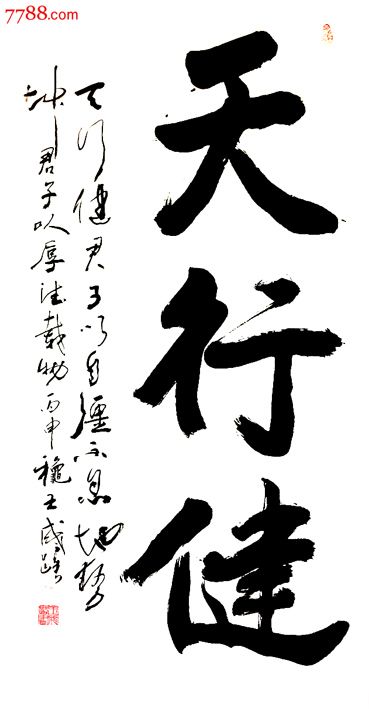 7788.com
天行健
天行健君子以自彊不息地势
坤君子以厚德載物丙申